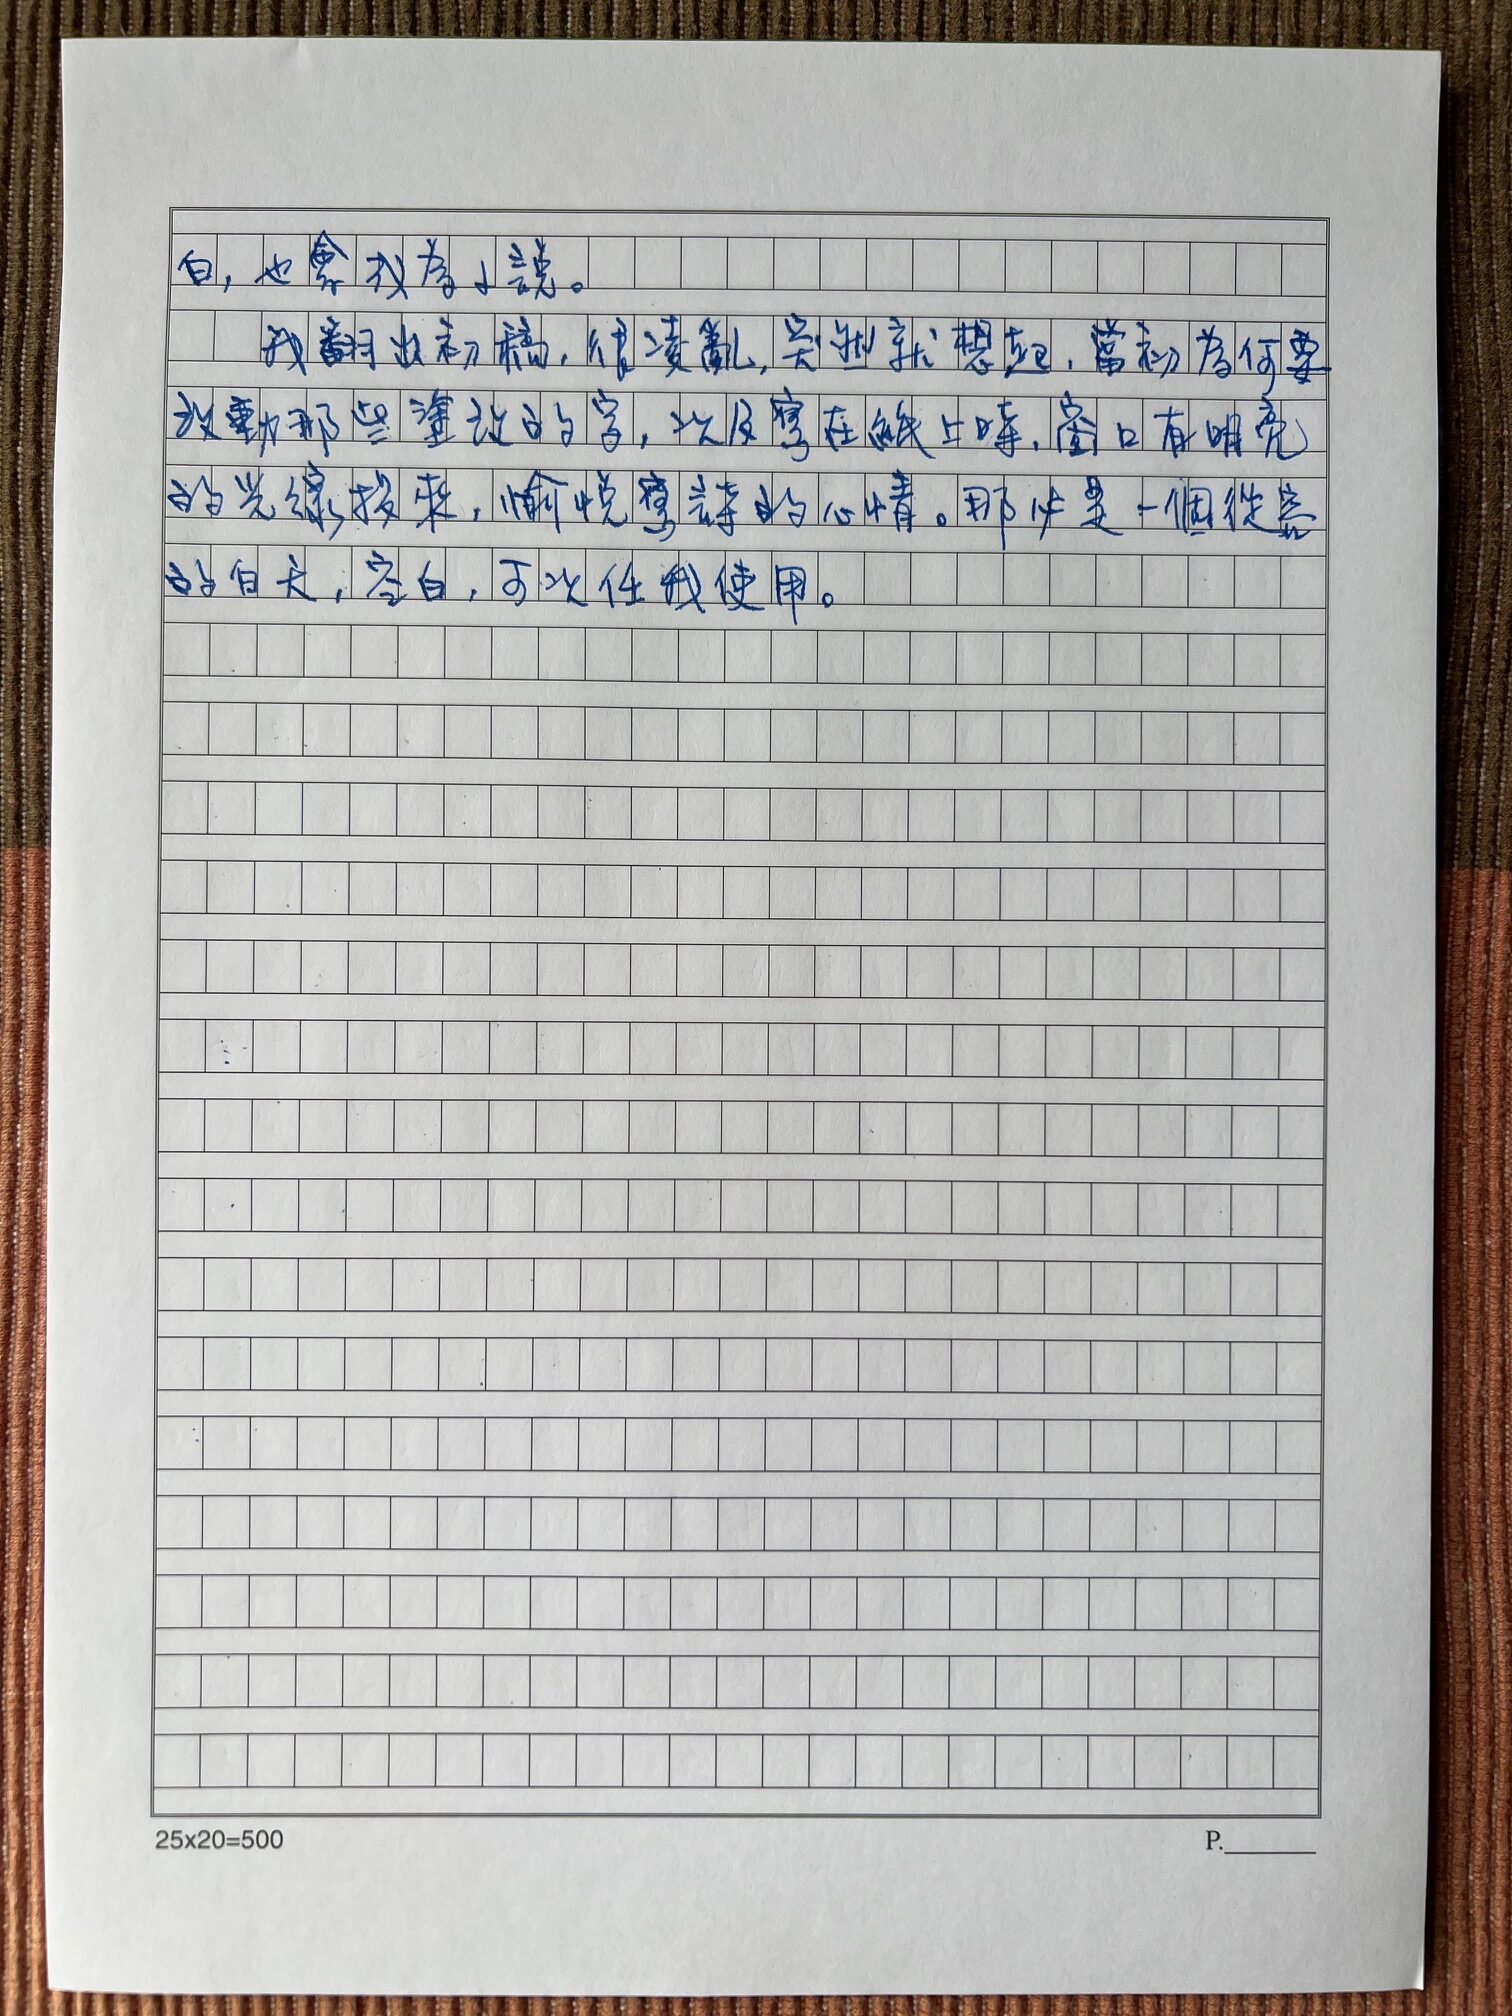 白,也會成為小說。
我翻出初稿,很凌亂,突然就想起,當初為何要
改動那些塗改的字,以及寫在紙上時,窗口有明亮
的光線投來,愉悅寫詩的心情。那必是一個從容
的白天,空白,可次任我使用。
25x20=500
P.